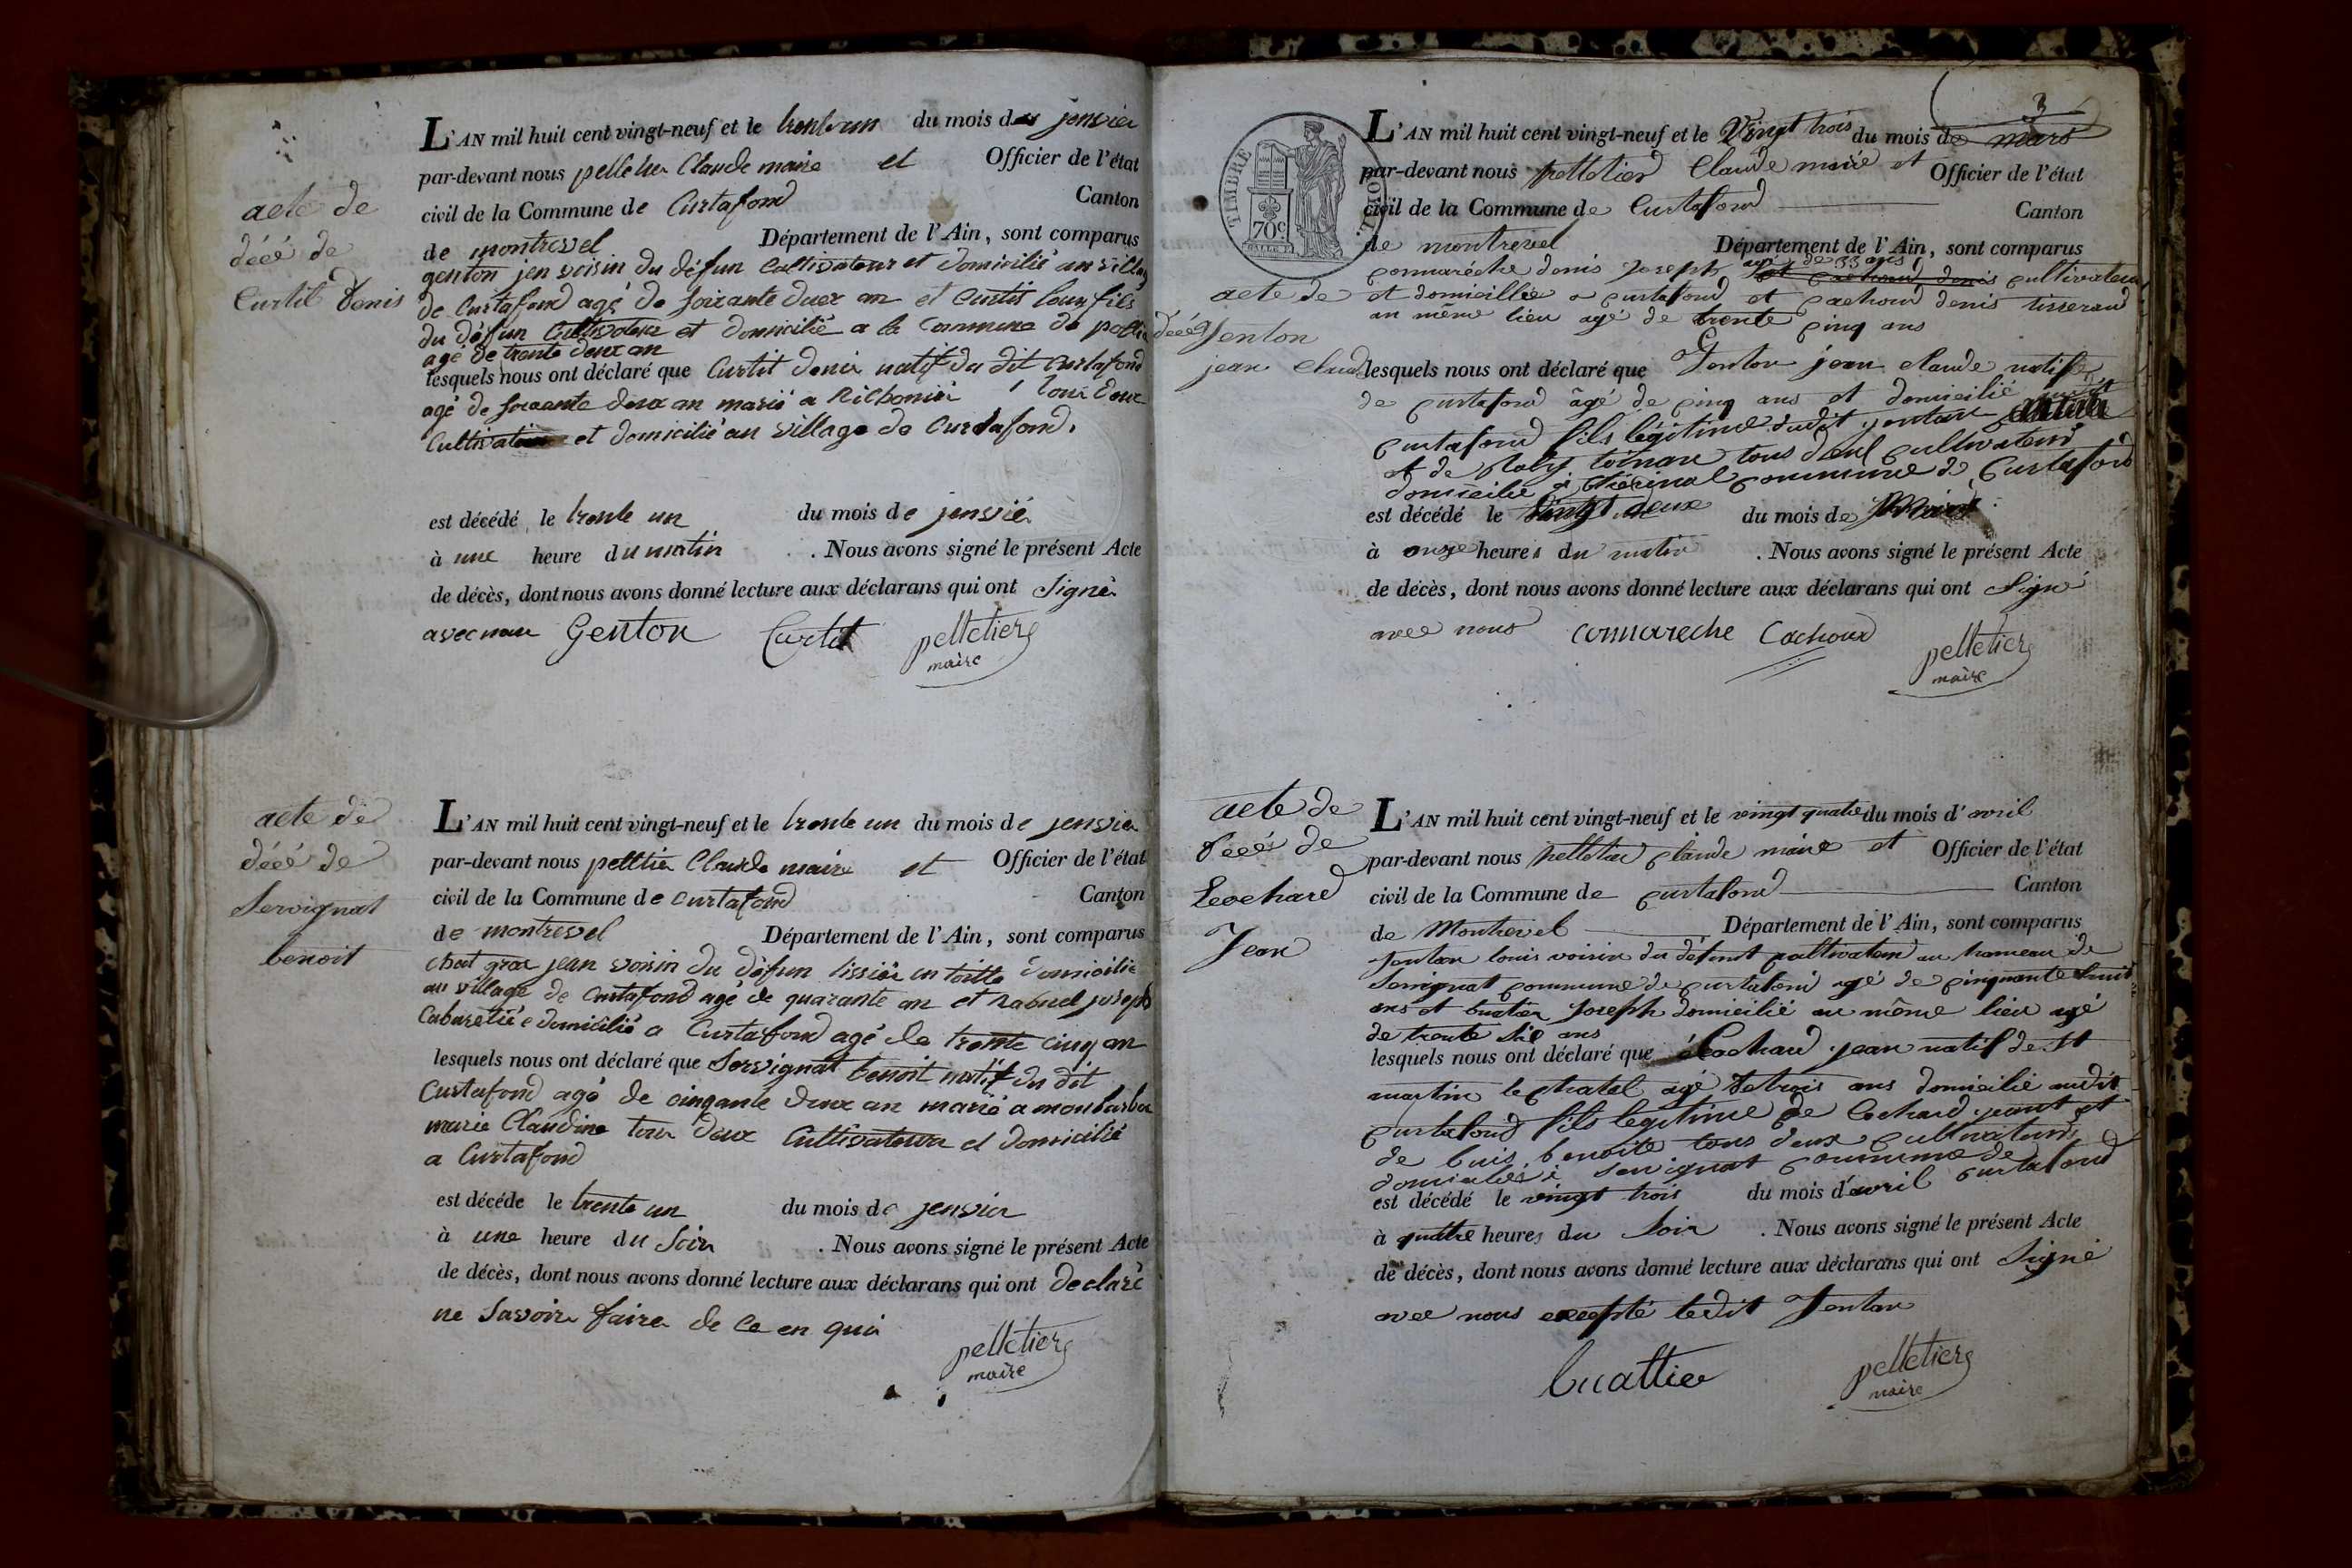 acte de
décé de
Curtil Denis
L'AN mil huit cent vingt-neuf et le trente un du mois de jenvier
par-devant nous pelletier Claude maire et Officier de l'état
civil de la Commune de Curtafond Canton
de montrevel Département de l'Ain, sont comparus
genton jen voisin du défun Cultivateur et domicilié au village
de Curtafond agé de soixante duex an et Curtit fils
du défun Cultivateur et domicilié a la Commune de
agé de trente deux an
lesquels nous ont déclaré que Curtit denis natif du dit Curtafond
agé de soixante deux an marié a tous deux
Cultivateur et domicilié au village de Curtafond.
est décédé le trente un du mois de jenvié
à une heure du matin . Nous avons signé le présent Acte
de décès, dont nous avons donné lecture aux déclarans qui ont Signé
avec nous Genton Curtit pelletier
maire
acte de
décé de
Servignat
benoit
L'AN mil huit cent vingt-neuf et le trente un du mois de jenvier
par-devant nous pelltier Claude maire et Officier de l'état
civil de la Commune de Curtafond Canton
de montrevel Département de l'Ain, sont comparus
Chat gros jean voisin du défun tissier en toille domicilié
au village de Curtafond agé de quarante an et Rabuel joseph
Cabaretié domicilié a Curtafond agé de trente cinq an
lesquels nous ont déclaré que Servignat benoit natif du dit
Curtafond agé de cinqante deux an marié a monbarbon
marie Claudine tous deux Cultivateur et domicilié
a Curtafond
est décédé le trente un du mois de jenvier
à une heure du Soir . Nous avons signé le présent Acte
de décès, dont nous avons donné lecture aux déclarans qui ont declaré
ne Savoir faire de ce en qui
pelletier
maire
3
TIMBRE ROYAL
70c
L'AN mil huit cent vingt-neuf et le Vingt trois du mois de mars
par-devant nous pelletier Claude maire et Officier de l'état
civil de la Commune de Curtafond Canton
de montrevel Département de l'Ain, sont comparus
agé de 33 ans
connaréche denis Joseph et cachoud denis cultivateur
acte de
décé Jenton
jean Claude
et domicillié a curtafond et cachoud denis tisserand
au même lieu agé de trente cinq ans
lesquels nous ont déclaré que Jenton jean claude natif
de curtafond âgé de cinq ans et domicilié
curtafond fils légitime dudit jenton
et de tous deux cultivateurs
domicilié a commune de Curtafond
est décédé le Vingt deux du mois de Mars
à onze heures du matin . Nous avons signé le présent Acte
de décès, dont nous avons donné lecture aux déclarans qui ont Signé
avec nous comareche Cachoud pelletier
maire
acte de
décés de
Leochard
Jean
L'AN mil huit cent vingt-neuf et le vingt quatre du mois d'avril
par-devant nous pelletier claude maire et Officier de l'état
civil de la Commune de curtafond Canton
de Montrevel Département de l'Ain, sont comparus
Jenton louis voisin du défunt cultivateur au hameau de
Servignat commune de curtafond agé de cinquante huit
ans et buatier Joseph domicilié au même lieu agé
de trente six ans
lesquels nous ont déclaré que Lechard jean natif de St
martin le chatel agé de trois ans domicilié audit
curtafond fils legitime de Lechard et
de buis benoite tous deux cultivateurs
domiciliés à Servignat commune de curtafond
est décédé le vingt trois du mois d'avril
à quatre heures du Soir . Nous avons signé le présent Acte
de décès, dont nous avons donné lecture aux déclarans qui ont Signé
avec nous excepté ledit Jenton
buattier pelletier
maire